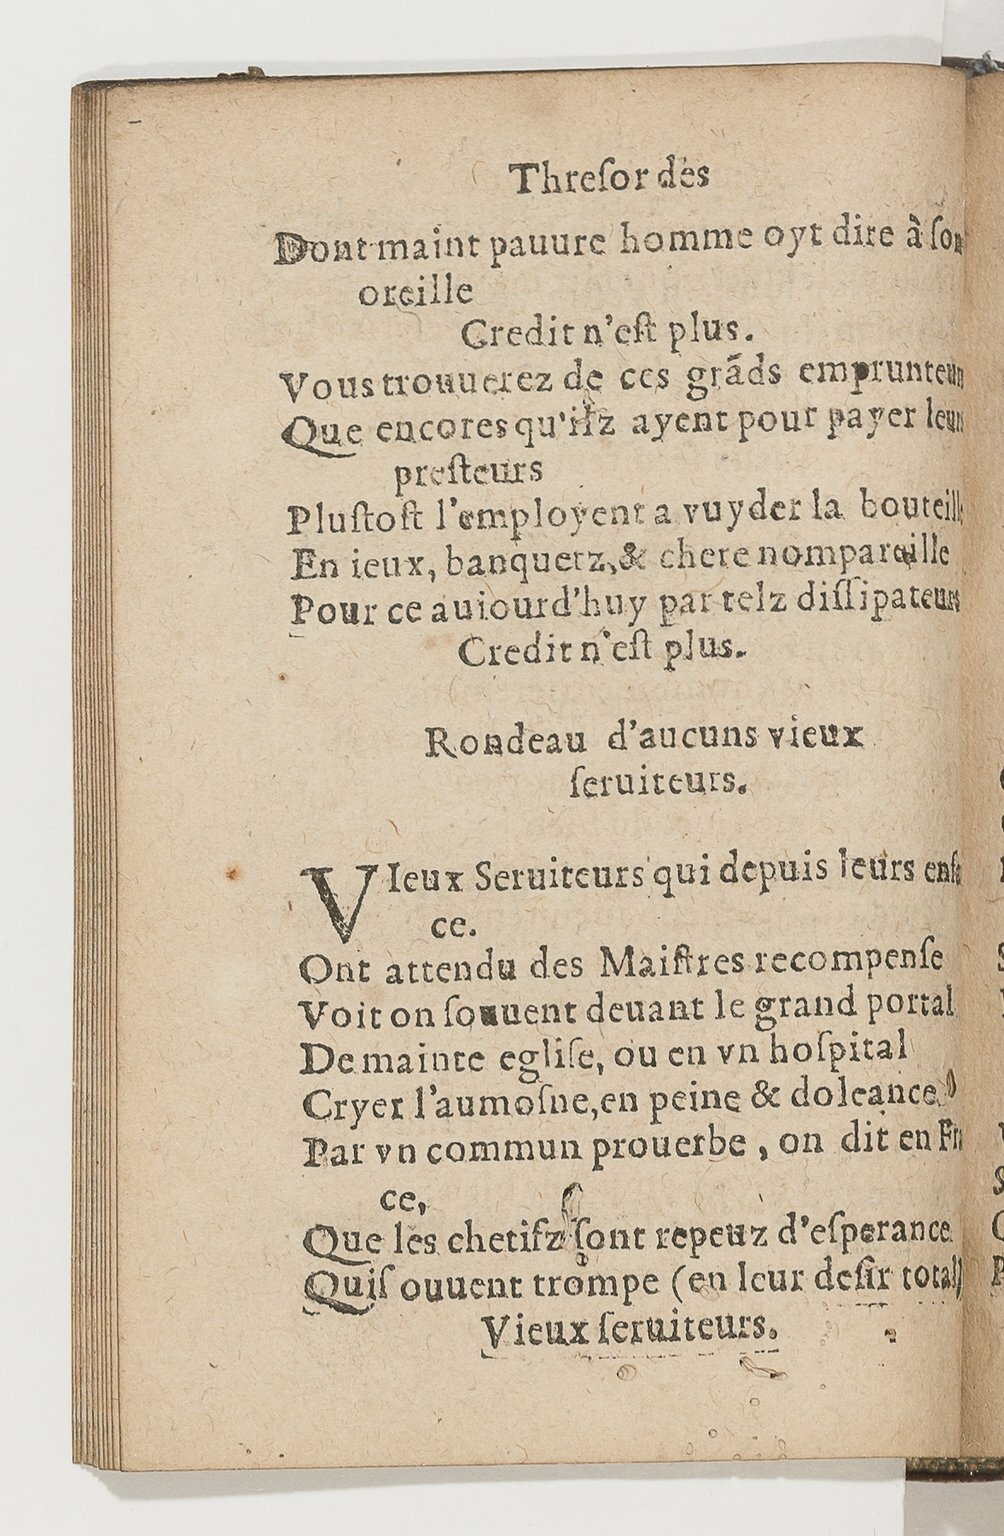 Threſor des
Dont maint pauure homme oyt dire à ſon
oreille
Credit n'eſt plus.
Vous trouuerez de ces grãds emprunteurs
Que encores qu'ilz ayent pour payer leurs
preſteurs
Pluſtoſt l'employent a vuyder la bouteille
En ieux, banquetz, & chere nompareille
Pour ce auiourd'huy par telz diſſipateurs
Credit n'eſt plus.
Rondeau d'aucuns vieux
ſeruiteurs.
VIeux Seruiteurs qui depuis leurs enfã
ce.
Ont attendu des Maiſtres recompenſe
Voit on ſouuent deuant le grand portal
De mainte egliſe, ou en vn hoſpital
Cryer l'aumoſne, en peine & doleance.
Par vn commun prouerbe, on dit en Frã
ce,
Que les chetifz ſont repeuz d'eſperance
Quiſ ouuent trompe (en leur deſir total)
Vieux ſeruiteurs.